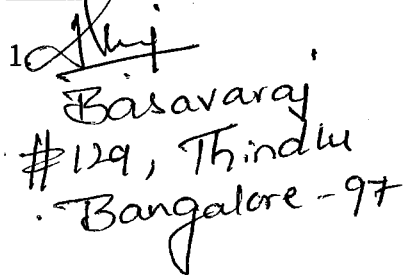 1.
Basavaraj
#129, Thindlu
Bangalore - 97